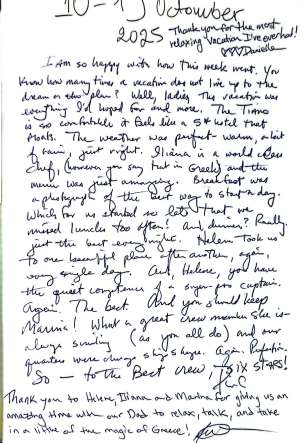 10-19 October
2025 Thank you for the most
relaxing vacation I've ever had!
♡♡♡ Daniella
I am so happy with how this week went. You
know how many times a vacation does not live up to the
dream or the plan? Well, ladies This vacation was
everything I'd hoped for and more. The Tiamo
is so comfortable it feels like a 5* hotel that
floats. The weather was perfect - warm, a bit
of rain, just right. Iliana is a world class
Chef, (however you say that in Greek) and the
menu was just amazing. Breakfast was
a photograph of the best way to start a day.
Which for us started so late that we
missed lunch too often! And dinner? Really
just the best every night. Helene took us
to one beautiful place after another, again,
every single day. And, Helene, you have
the quiet competence of a super pro captain.
Again. The best. And you should keep
Marina! What a great crew member she is -
always smiling (as you all do) and our
quarters were always ship shape. Again. Perfection.
So - to the Best crew, SIX STARS!
Thank you to Helene, Iliana and Marina for giving us an
amazing time with our Dad to relax, talk, and take
in a little of the magic of Greece!